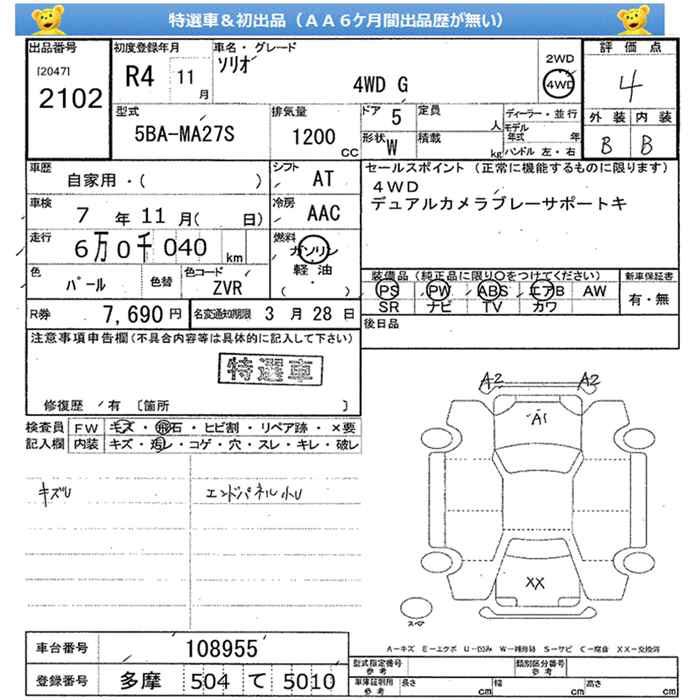 特選車＆初出品（ＡＡ６ケ月間出品歴が無い）
出品番号
[2047]
2102
初度登録年月
R4 11月
車名・グレード
ソリオ
4WD G
2WD
4WD
評価点
4
外装 内装
B B
型式
5BA-MA27S
排気量
1200 CC
ドア 5
定員 人
形状 W
積載 kg
ディーラー・並行
モデル年式 年
ハンドル 左・右
車歴
自家用・( )
シフト AT
車検
7 年 11 月( 日)
冷房 AAC
走行
6万0千040 km
燃料
ガソリン
軽油
( ・ )
色
パール
色替
色コード
ZVR
R券 7,690円
名変通知期限 3 月 28 日
セールスポイント（正常に機能するものに限ります）
４ＷＤ
デュアルカメラブレーサポートキ
装備品（純正品に限り○をつけてください）
新車保証書
PS PW ABS エアB AW
SR ナビ TV カワ
有・無
後日品
注意事項申告欄(不具合内容等は具体的に記入して下さい)
特選車
修復歴 ／ 有 〔箇所 〕
検査員記入欄
FW キズ・飛石・ヒビ割・リペア跡・×要
内装 キズ・汚レ・コゲ・穴・スレ・キレ・破レ
キズU
エンドパネル小U
A2 A2
A1
XX
スペア
A－キズ E－エクボ U－凹み W－補修跡 S－サビ C－腐食 XX－交換済
車台番号 108955
登録番号 多摩 504 て 5010
型式指定番号 参考
類別区分番号 参考
車庫証明用 参考
長さ cm 幅 cm 高さ cm